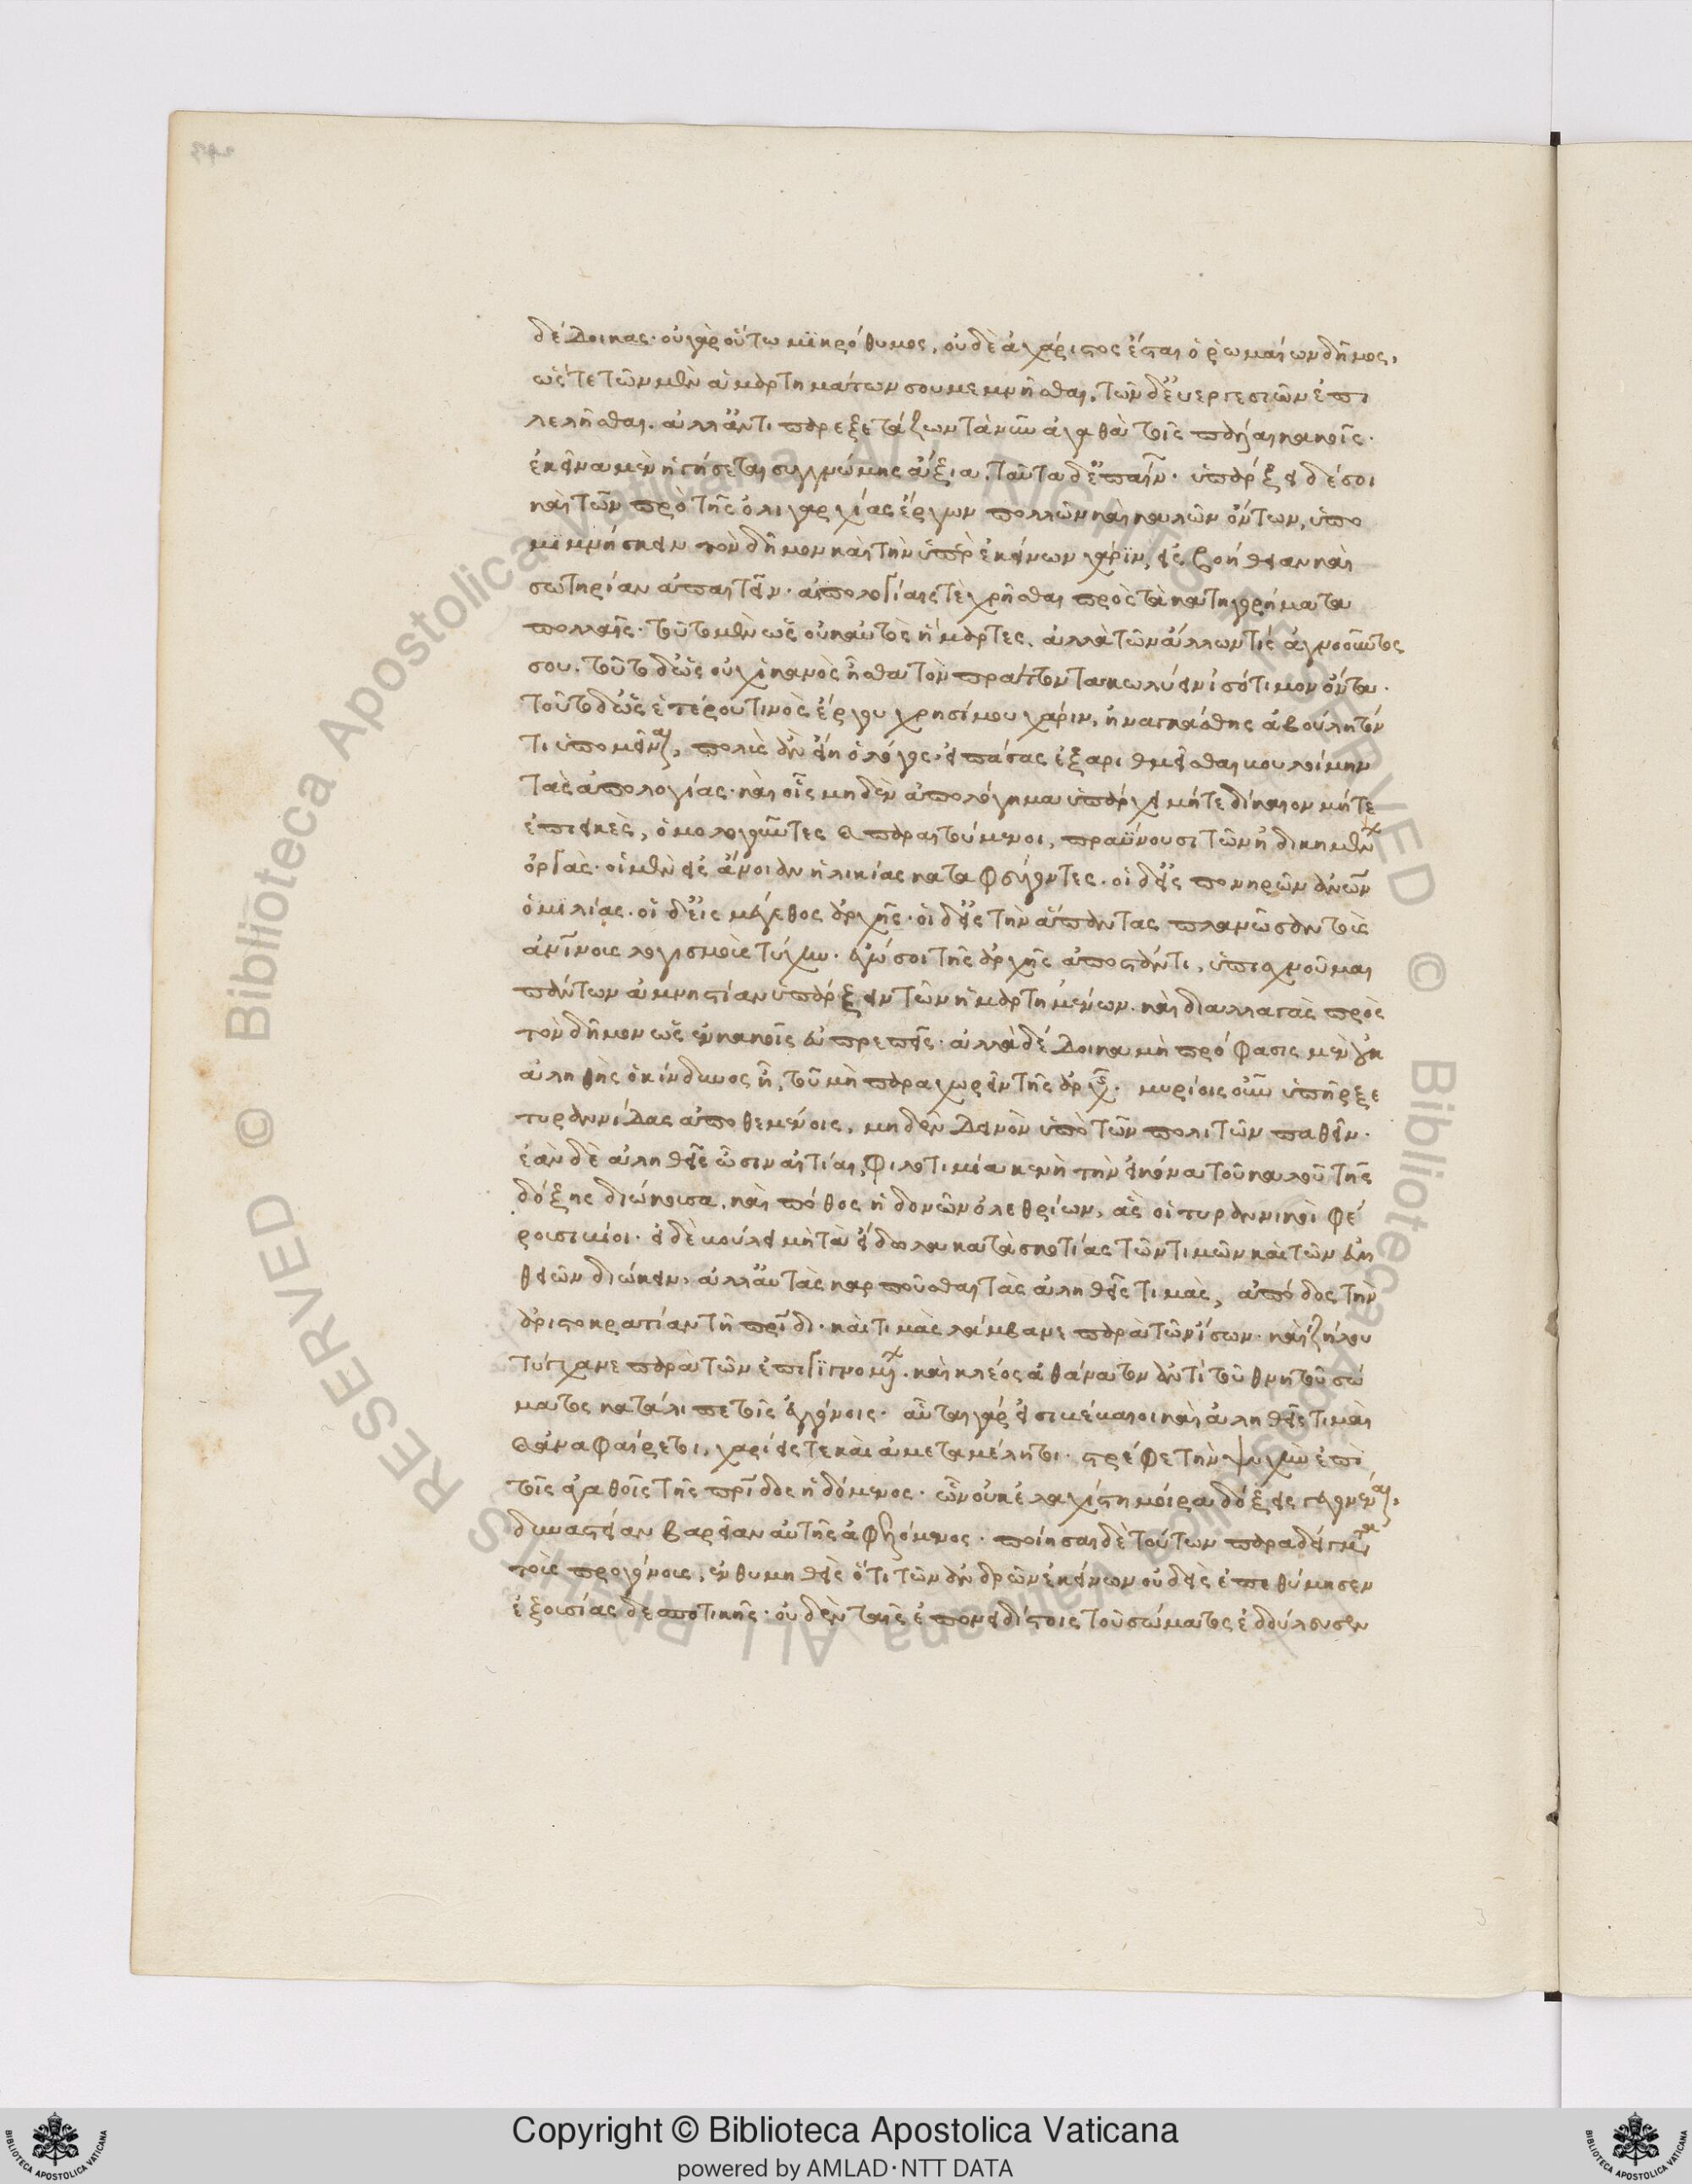 δέδοικας· οὐ γὰρ οὕτω μϊκρόθυμος, οὐδὲ ἀχάριστος ἔσται ὁ ῥωμαίων δῆμος,
ὥστε τῶν μὲν ἁμαρτημάτων σου μεμνῆσθαι, τῶν δ' εὐεργεσιῶν ἐπι
λελῆσθαι. ἀλλ' ἀντιπαρεξετάζων τὰ νῦν ἀγαθὰ τοῖς πάλαι κακοῖς.
ἐκεῖνα μὲν ἡγήσεται συγγνώμης ἄξια, ταῦτα δ' ἐπαίνων. ὑπάρξει δέ σοι
καὶ τῶν πρὸ τῆς ὀλιγαρχίας ἔργων πολλῶν καὶ καλῶν ὄντων, ὑπο
μϊμνήσκειν τὸν δῆμον καὶ τὴν ὑπὲρ ἐκείνων χάρϊν, εἰς βοήθειαν καὶ
σωτηρίαν ἀπαιτεῖν. ἀπολογίαις τὲ χρῆσθαι πρὸς τὰ κατηγορήματα
πολλαῖς. τοῦτο μὲν ὡς οὐκ αὐτὸς ἥμαρτες, ἀλλὰ τῶν ἄλλων τίς ἀγνοοῦντος
σου. τοῦτο δ' ὡς οὐχ ἱκανὸς ἦσθα τὸν πράττοντα κωλύειν ἰσότιμον ὄντα.
τοῦτο δ' ὡς ἑτέρου τινὸς ἔργου χρησίμου χάριν, ἠναγκάσθης ἀβούλητόν
τι ὑπομεῖναι, πολὺς ἂν εἴη ὁ λόγος, εἰ πάσας ἐξαριθμεῖσθαι βουλοίμην
τὰς ἀπολογίας. καὶ οἷς μηδὲν ἀπολόγημα ὑπάρχει μήτε δίκαιον μήτε
ἐπιεικὲς, ὁμολογοῦντες καὶ παραιτούμενοι, πραΰνουσι τῶν ἠδικημένων
ὀργὰς. οἱ μὲν εἰς ἄνοιαν ἡλικίας καταφεύγοντες. οἱ δ' εἰς πονηρῶν ἀνῶν
ὁμϊλίας. οἱ δ' εἰς μέγεθος ἀρχῆς. οἱ δ' εἰς τὴν ἅπαντας πλανῶσαν τοὺς
ἀνίνους λογισμοὺς τύχην. ἐγώ σοι τῆς ἀρχῆς ἀποστάντι, ὑπισχνοῦμαι
πάντων ἀμνηστίαν ὑπάρξειν τῶν ἡμαρτημένων. καὶ διαλλαγὰς πρὸς
τὸν δῆμον ὡς ἐν κακοῖς εὐπρεπεῖς. ἀλλὰ δέδοικα μὴ πρόφασις μὲν οὐκ
ἀληθὴς ὁ κίνδυνος ᾖ, τοῦ μὴ παραχωρεῖν τῆς ἀρχῆς. μυρίοις οὖν ὑπῆρξε
τυραννίδας ἀποθεμένοις, μηδὲν δεινὸν ὑπὸ τῶν πολιτῶν παθεῖν.
ἐὰν δὲ ἀληθεῖς ὦσιν αἰτίαι, φιλοτιμία κενὴ τὴν εἰκόνα τοῦ καλοῦ τῆς
δόξης διώκουσα, καὶ πόθος ἡδονῶν ὀλεθρίων, ἃς οἱ τυραννικοὶ φέ
ρουσι βίοι. εἰ δὲ βούλει μὴ τὰ εἴδωλα κατὰ σκοτίας τῶν τιμῶν καὶ τῶν εὐπα
θειῶν διώκειν, ἀλλ' αὐτὰς καρποῦσθαι τὰς ἀληθεῖς τιμὰς, ἀπόδος τὴν
ἀριστοκρατίαν τῇ πρίδι. καὶ τιμὰς λάμβανε παρὰ τῶν ἴσων. καὶ ζήλου
τύγχανε παρὰ τῶν ἐπιγϊγνομένων. καὶ κλέος ἀθάνατον ἀντὶ τοῦ θνητοῦ σώ
ματος κατάλιπε τοῖς ἐγγόνοις. αὗται γάρ εἰσι βέβαιοι καὶ ἀληθεῖς τιμαὶ
καὶ ἀναφαίρετοι, χαρίεις τε καὶ ἀμεταμέλητοι. τρέφε τὴν ψυχὴν ἐπὶ
τοῖς ἀγαθοῖς τῆς πρίδος ἡδόμενος. ὧν οὐκ ἐλαχίστη μοίρα δόξεις γεγονέναι,
δυναστείαν βαρεῖαν αὐτῆς ἀφελόμενος. ποίησαι δὲ τούτων παραδείγματα
τοὺς προγόνους, ἐνθυμηθεὶς ὅτι τῶν ἀνδρῶν ἐκείνων οὐδεὶς ἐπεθύμησεν
ἐξουσίας δεσποτικῆς. οὐδὲν ταῖς ἐπονειδίστοις τοῦ σώματος ἐδούλευσεν
Copyright © Biblioteca Apostolica Vaticana
powered by AMLAD·NTT DATA